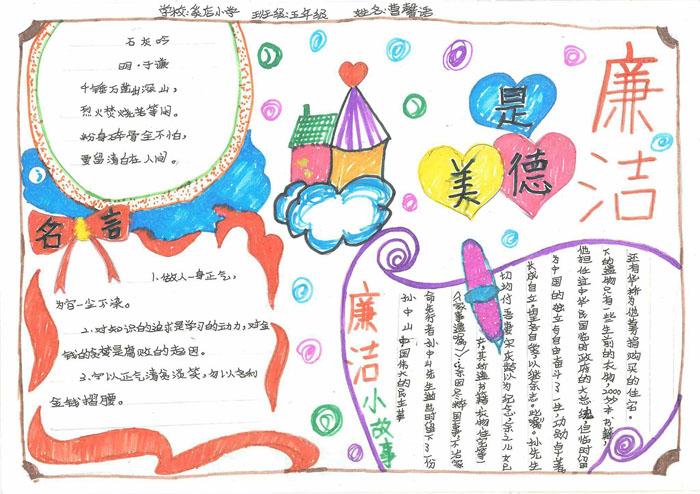 学校:家店小学 班级:五年级 姓名:曹馨语
石灰吟
明·于谦
千锤万凿出深山,
烈火焚烧若等闲。
粉身碎骨全不怕,
要留清白在人间。
名言
1.做人一身正气,
为官一尘不染。
2.对知识的追求是学习的动力,对金
钱的贪婪是腐败的起因。
3.可以正气清高谈笑,勿以名利
金钱摺腰。
是
美德
廉洁
廉洁小故事
孙中山中国伟大的民主革
命先行者孙中山先生逝世时留下了一份
《家事遗嘱》:余因尽瘁国事,不治家
产,其所遗书籍、衣物、住宅等一
切均付吾妻宋庆龄以为纪念,余之儿女已
长成自立,望各自爱,以继余志,此嘱。孙先生
为中国的独立与自由奋斗了一生,功勋卓著
他担任过中华民国临时政府的大总统,但临时留
下的遗物只有一些生前的衣物,2000多本书籍,
还有华侨为他募捐购买的住宅。